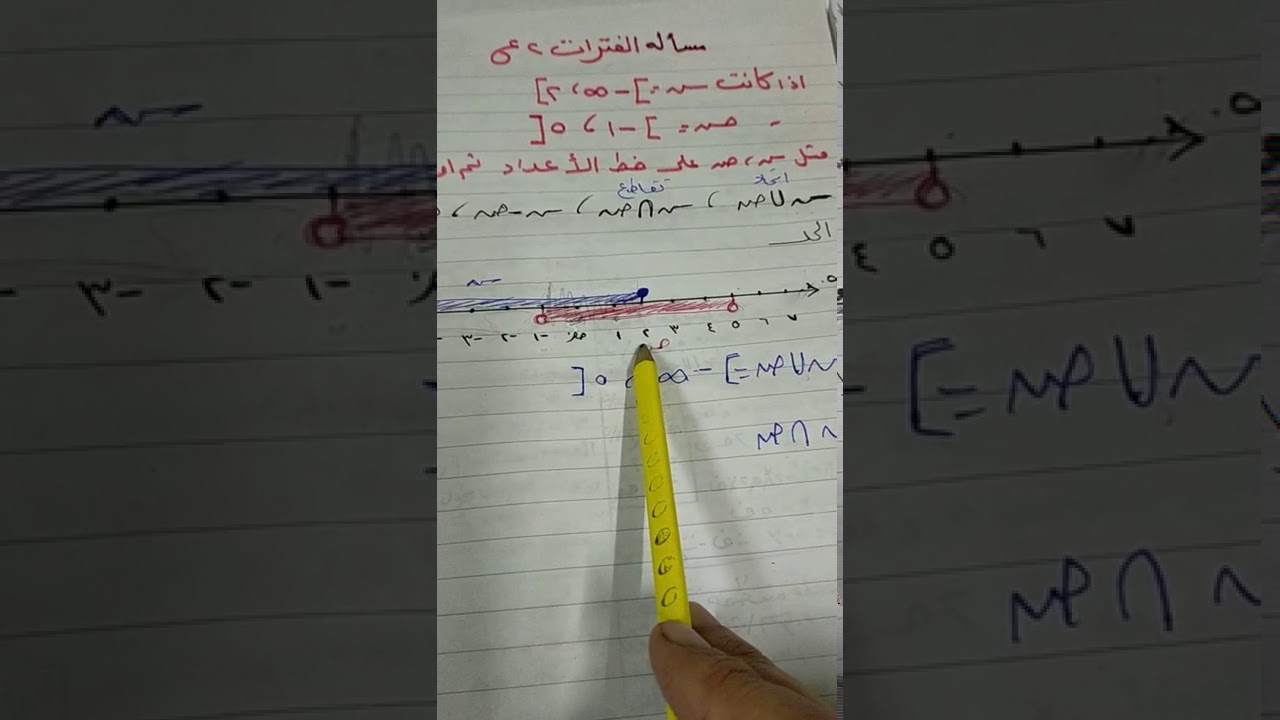 مسأله الفترات ٢ عى
اذا كانت س = ]-∞، ٢]
، ص = ]-١، ٥[
مثل س، ص على خط الأعداد ثم
اتحاد تقاطع
س∪ص، س∩ص، س-ص،
الحل
س
-٣ -٢ -١ صفر ١ ٢ ٣ ٤ ٥ ٦ ٧
ص
س∪ص = ]-∞، ٥[
س∩ص